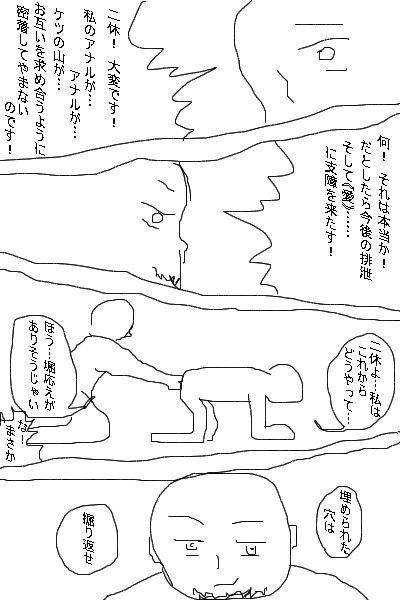 二休！ 大変です！
私のアナルが…
アナルが…
ケツの山が…
お互いを求め合うように
密落してやまない
のです！
何！ それは本当か！
だとしたら今後の排泄
そして《愛》……
に支障を来たす！
二休よ…私は
これから
どうやって…
ほう…堀応えが
ありそうじゃい
な！
まさか
埋められた
穴は
掘り返せ